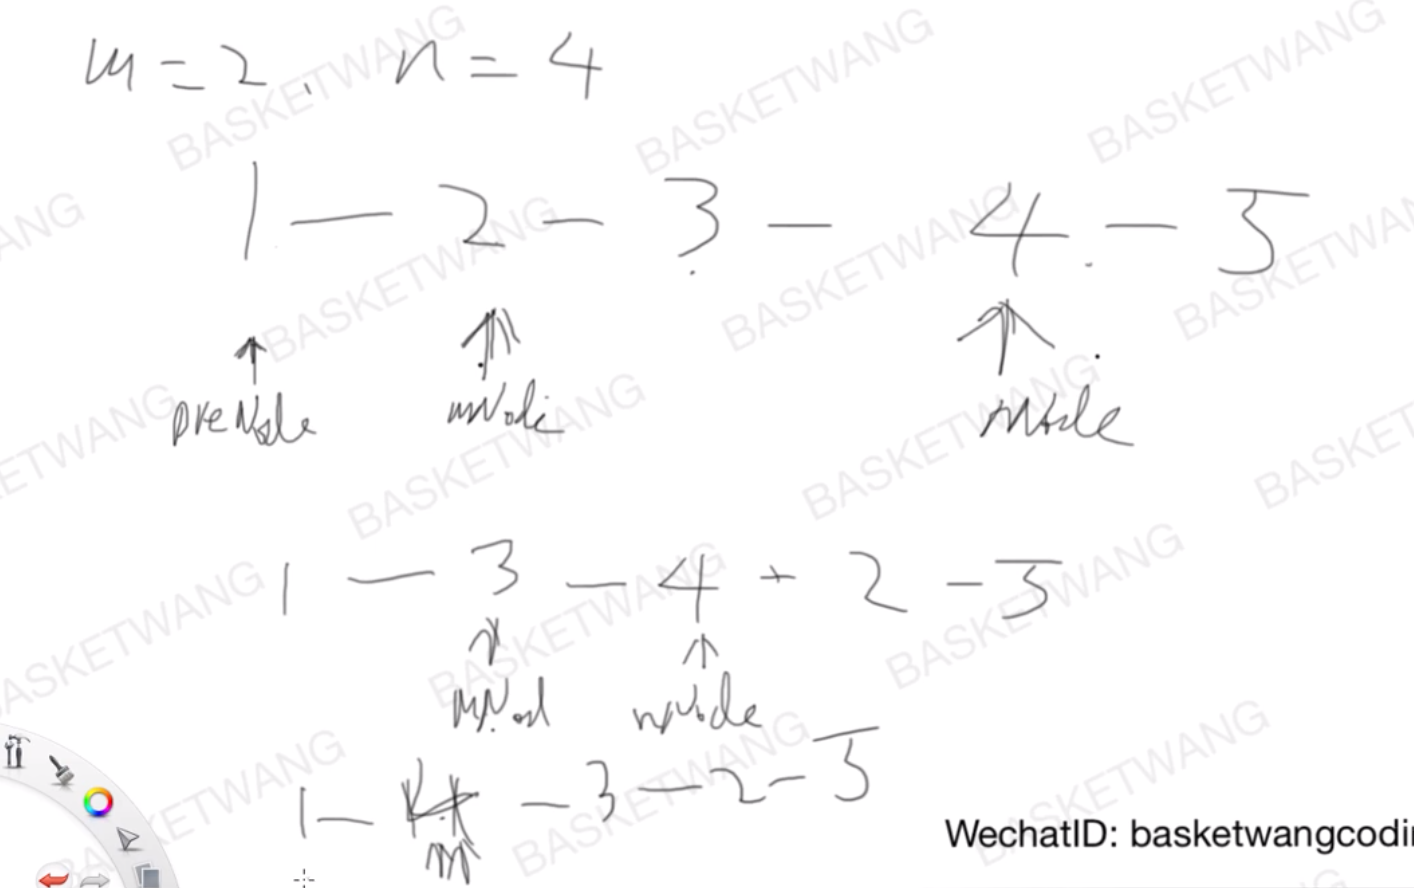 m = 2, n = 4
1 — 2 — 3 — 4 — 5
preNode mNode nNode
1 — 3 — 4 — 2 — 5
mNod nNode
1 — 4 — 3 — 2 — 5
WechatID: basketwangcodin
BASKETWANG